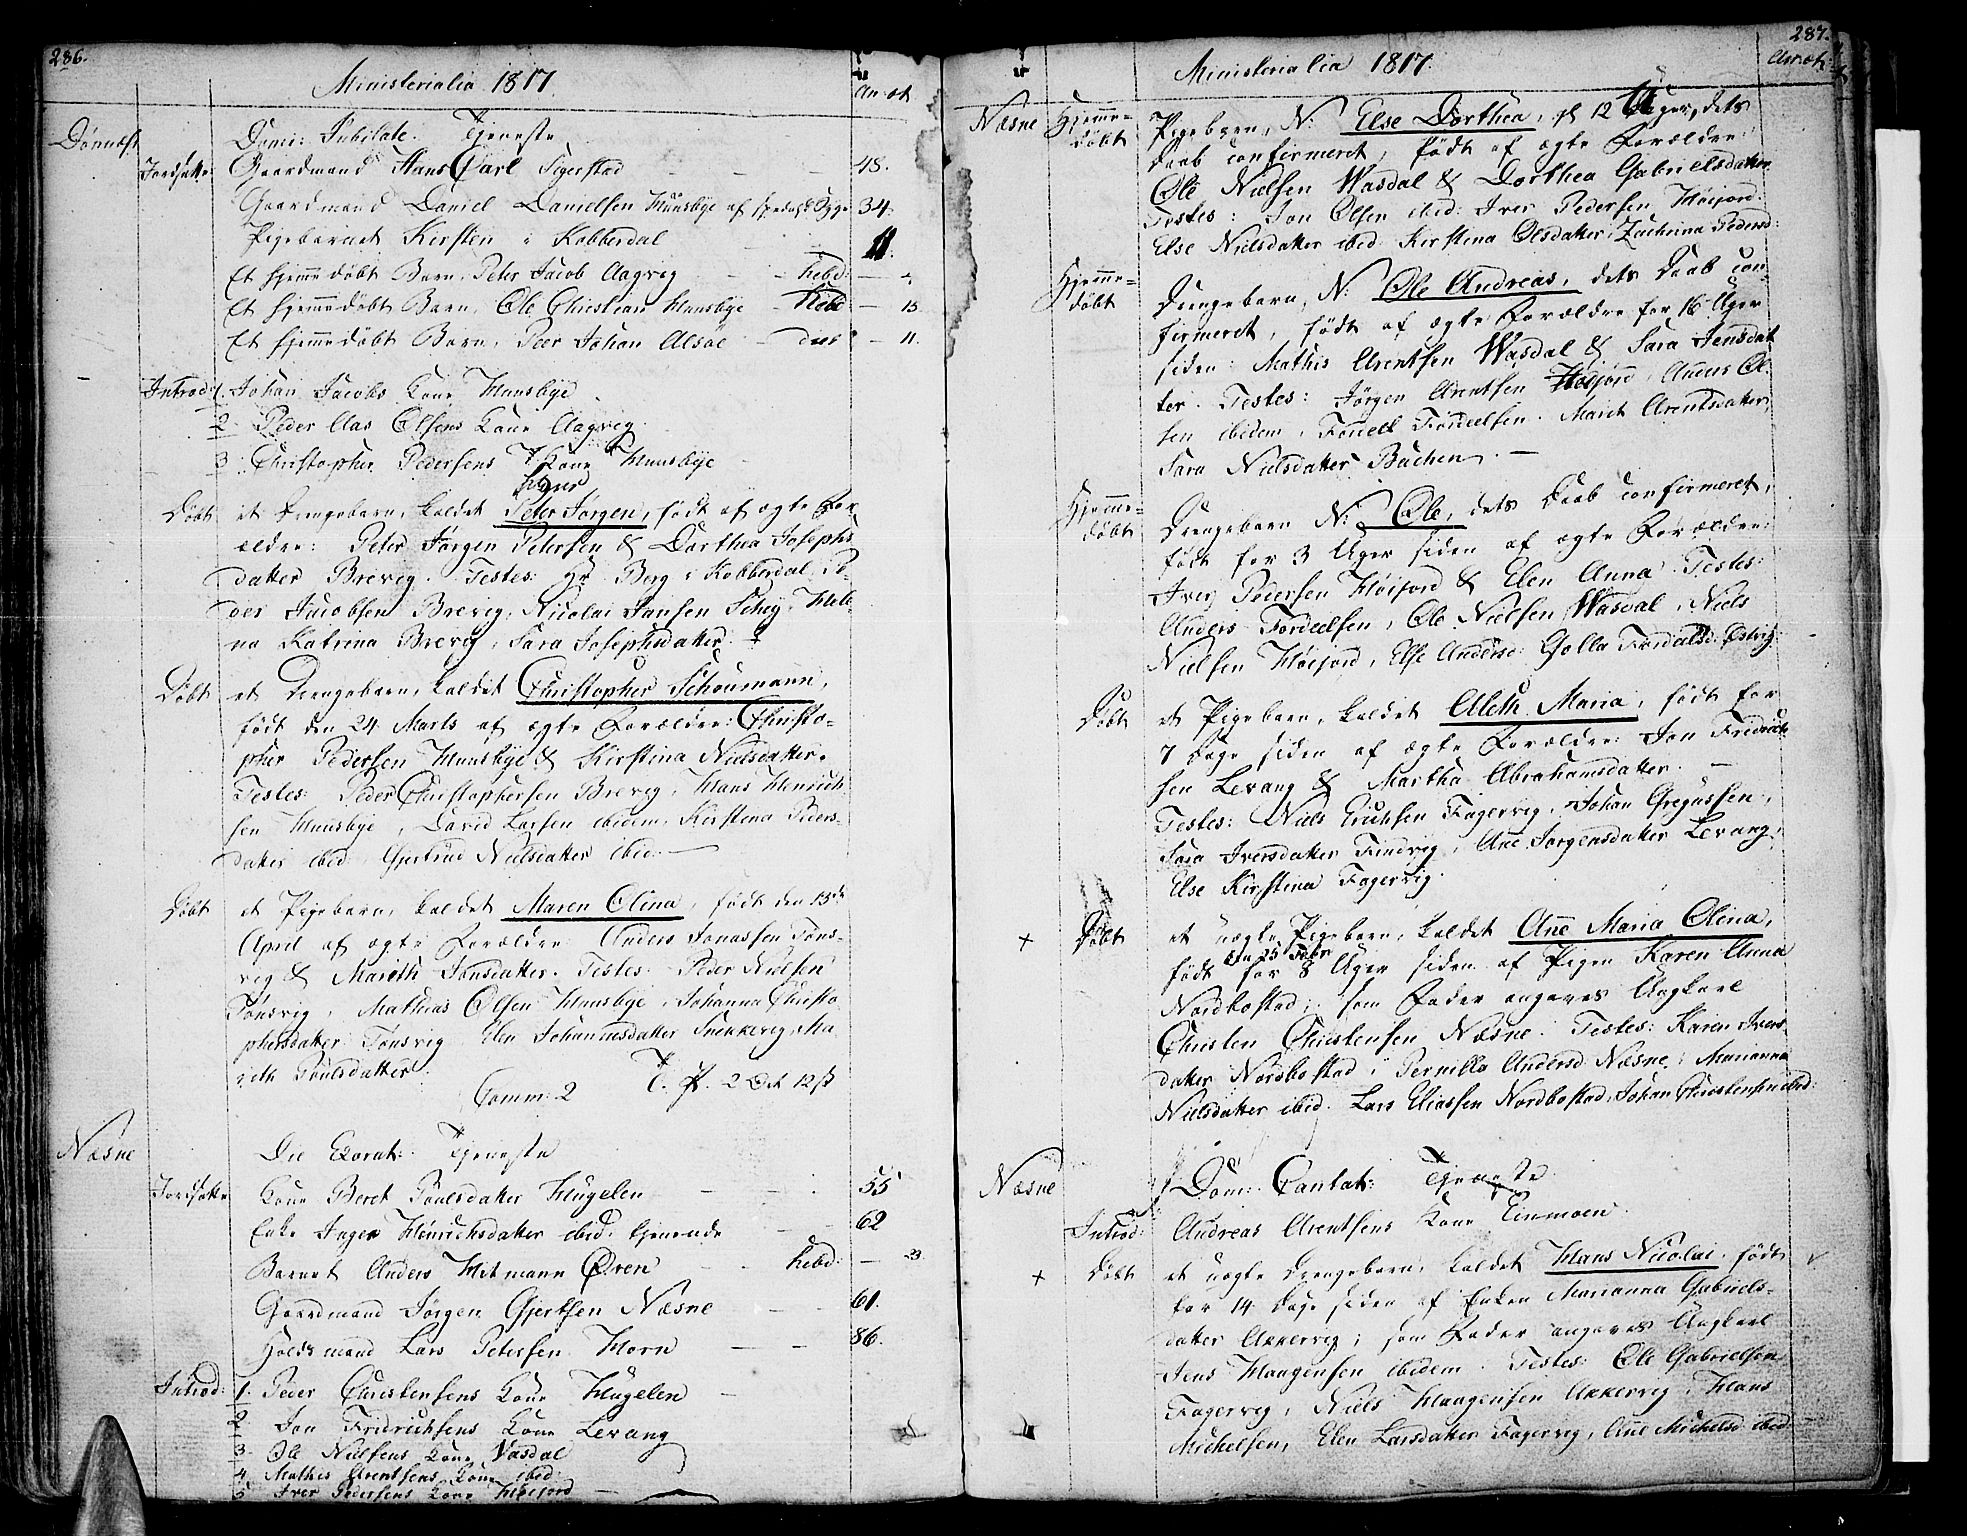 286.
Ministerialia 1817.
An: æt.
Dønnæs
Domi: Jubilate. Tjeneste
Jordfæst: Gaardmand Hans Carl Sigerstad — — 48.
Gaardmand Daniel Danielsen Huusbye af spedalsk Syge 34.
Pigebarnet Kirsten i Kobberdal 11.
Et hjemmedøbt Barn, Peter Jacob Aagvig — hebd: —
Et hjemmedøbt Barn, Ole Christian Huusbye — hebd — 15
Et hjemmedøbt Barn, Peer Johan Alsøe — dies — 11.
Introd: 1. Johan Jacobs Kone Huusbye
2. Peder Aas Olsens Kone Aagvig.
3. Christopher Pedersens Kone Huusbye
Døbt et Drengebarn, kaldet Peter Jørgen, født af ægte For-
ældre: Peter Jørgen Petersen & Dorthea Josephs
datter Brevig. Testes: Hr Berg i Kobberdal, Pe-
der Jacobsen Brevig, Nicolai Jansen Schey, Hele-
na Katrina Brevig, Sara Josephsdatter
Døbt et Drengebarn, kaldet Christopher Schoumann,
født den 24 Marts af ægte Forældre: Christo-
pher Pedersen Huusbye & Kirstina Nielsdatter.
Testes: Peder Christophersen Brevig, Hans Henrich
sen Huusbye, David Larsen ibidem, Kirstina Peders-
datter ibid, Gjertrud Nielsdatter ibid. —
Døbt et Pigebarn, kaldet Maren Olina, født den 13de
April af ægte Forældre: Anders Jonassen Tøns-
vig & Mareth Jonsdatter. Testes: Peder Nielsen
Tønsvig, Mathias Olsen Huusbye, Johanna Christo
phersdatter Tønsvig, Elen Johannesdatter Snekkevig, Ma-
reth Poulsdatter.
Comm: 2 T. Pf. 2 Ort 12 ß
Næsne
Die Exorat: Tjeneste
Jordfæst: Kone Beret Poulsdatter Hugelen — — 55
Enke Inger Henrichsdatter ibid. tjenende — 62
Barnet Anders Hitmann Øren — hebd: — 23.
Gaardmand Jørgen Gjertsen Næsne — — 61.
Holdsmand Lars Petersen Horn — — 86.
Introd: 1. Peder Christensens Kone Hugelen —
2 Jon Fridrichsens Kone Levang
3. Ole Nielsens Kone Vasdal
4. Mathis Arentsens Kone ibid:
5 Iver Pedersens Kone Høifjord —
287.
Ministerialia 1817.
An: æt:
Næsne Hjemme-
døbt
Pigebarn, N: Else Dorthea, 12 Uger, dets
Daab confirmeret, født af ægte Forældre:
Ole Nielsen Wasdal & Dorthea Gabrielsdatter
Testes: Jon Olsen ibid: Iver Pedersen Høifjord.
Else Nielsdatter ibid. Kirstina Olsdatter, Zachrina Pedersd:
Hjemme-
døbt
Drengebarn, N: Ole Andreas, dets Daab con-
firmeret, født af ægte Forældre for 16 Uger
siden: Mathis Arentsen Wasdal & Sara Jensdat
ter. Testes: Jørgen Arentsen Høifjord, Anders Ol-
sen ibidem, Tordell Tordelsen. Marit Arentsdatter,
Sara Nielsdatter Bachen. —
Hjemme-
døbt
Drengebarn N: Ole, dets Daab confirmeret,
født for 3 Uger siden af ægte Forældre:
Iver Pedersen Høifjord & Elen Anna. Testes:
Anders Tordelsen, Ole Nielsen Wasdal, Niels
Nielsen Høifjord, Else Andersd: Golla Tordalsd: Østvig:
Døbt et Pigebarn, kaldet Aleth Maria, født for
7 Dage siden af ægte Forældre: Jon Fredrich
sen Levang & Martha Abrahamsdatter. —
Testes: Niels Erichsen Fagervig, Johan Gregussen,
Sara Iversdatter Findvig, Ane Jørgensdatter Levang,
Else Kirstina Fagervig.
+ Døbt et uægte Pigebarn, kaldet Ane Maria Olina,
den 25 Febr
født for 8 Uger siden af Pigen Karen Anna
Nordbostad; som Fader angaves Ungkarl
Christen Christensen Næsne. Testes: Karen Ivers-
datter Nordbostad, Pernilla Andersd Næsne, Marianna
Nielsdatter ibid. Lars Eliassen Nordbostad, Johan Christensen ibid:
Næsne
Dom: Cantat: Tjeneste
Introd: Andreas Arentsens Kone Einmoen.
+ Døbt et uægte Drengebarn, kaldet Hans Nicolai, født
for 14 Dage siden af Enken Marianna Gabriels-
datter Akkervig; som Fader angaves Ungkarl
Jens Haagensen ibidem. Testes: Ole Gabrielsen
Fagervig, Niels Haagensen Akkervig, Hans
Michelsen, Elen Larsdatter Fagervig, Ane Michelsd ibid.